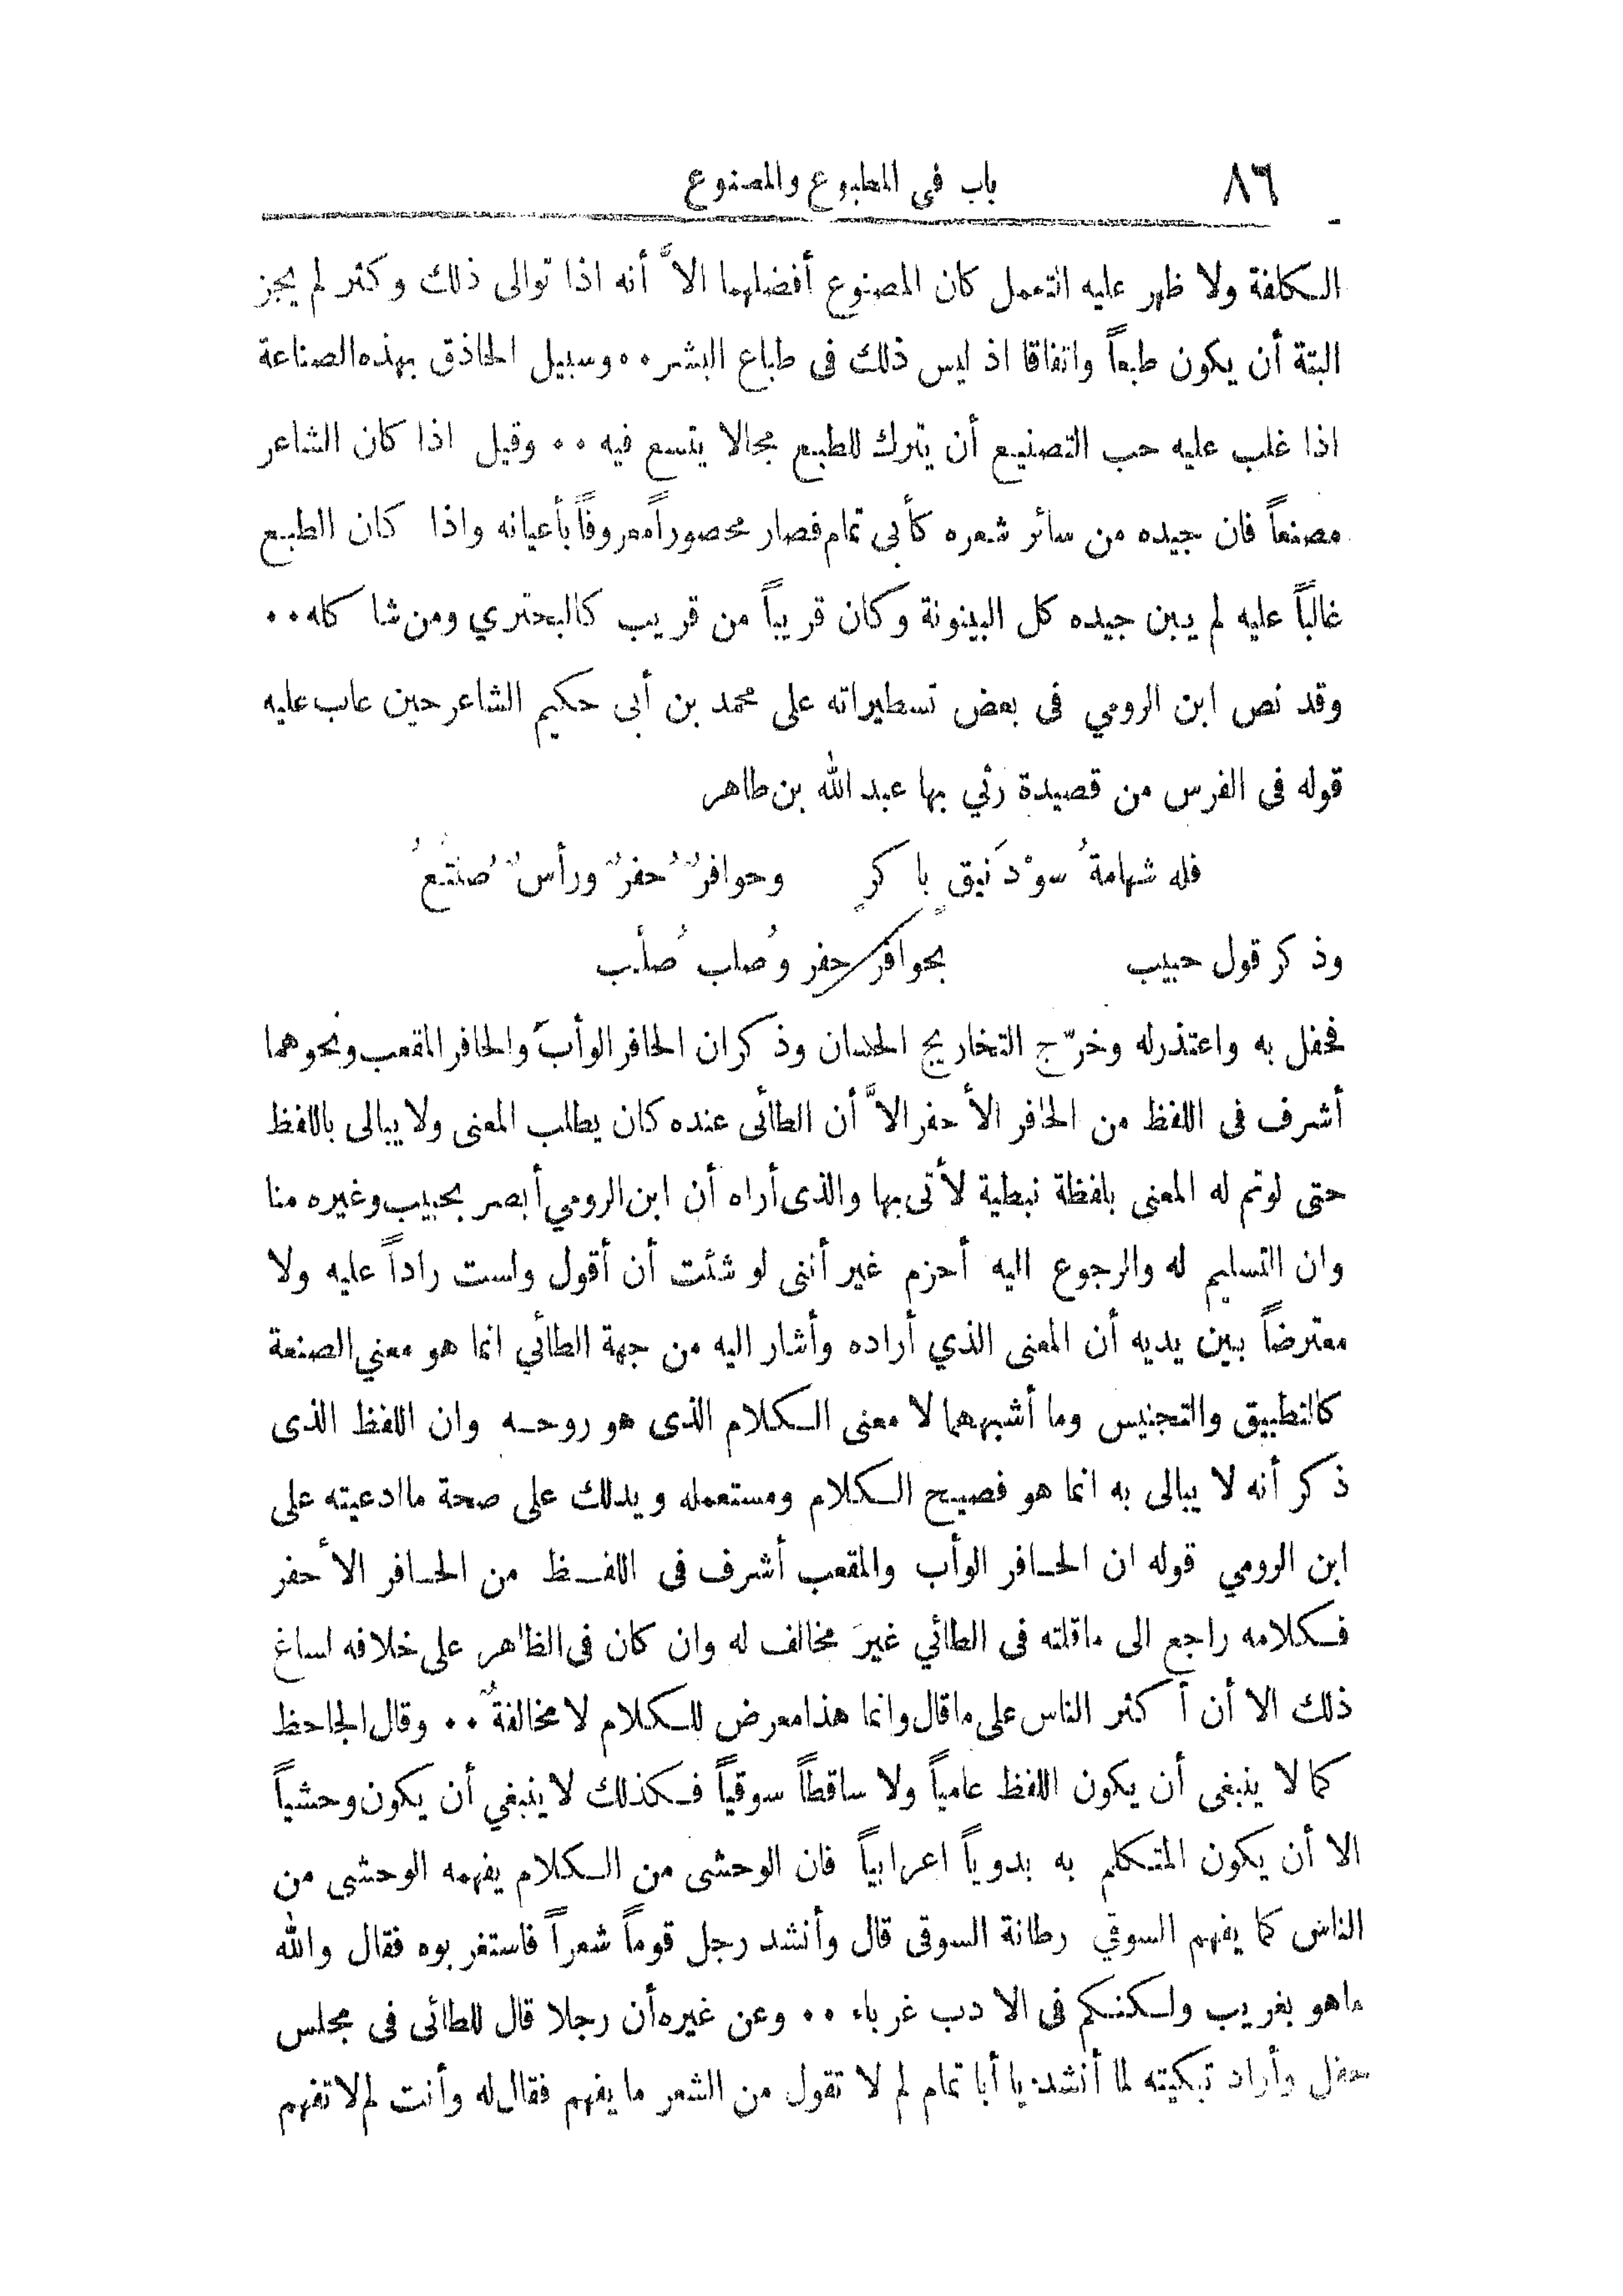 ٨٦ باب في المطبوع والمصنوع
الكلفة ولا ظهر عليه التعمل كان المصنوع أفضلهما الاَّ أنه اذا توالى ذلك وكثر لم يجز
البتة أن يكون طبعاً واتفاقا اذ ليس ذلك فى طباع البشر ٠٠ وسبيل الحاذق بهذه الصناعة
اذا غلب عليه حب التصنيع أن يترك للطبع مجالا يتسع فيه ٠٠ وقيل اذا كان الشاعر
مصنعاً فان جيده من سائر شعره كأبى تمام فصار محصوراً معروفاً بأعيانه واذا كان الطبع
غالباً عليه لم يبن جيده كل البينونة وكان قريباً من قريب كالبحتري ومن شاكله ٠٠
وقد نص ابن الرومي فى بعض تسطيراته على محمد بن أبى حكيم الشاعر حين عاب عليه
قوله فى الفرس من قصيدة رثي بها عبد الله بن طاهر
فله شهامةُ سوْدَنيق باكرٍ وحوافرٌ حُفرٌ ورأسٌ صُنتُعُ
وذكر قول حبيب بحوافر حفر وصُلب صُلَّب
فحفل به واعتذر له وخرّج التخاريج الحسان وذكر ان الحافر الوأب والحافر المقعب ونحوهما
أشرف فى اللفظ من الحافر الأحفر الاَّ أن الطائى عنده كان يطلب المعنى ولا يبالى باللفظ
حتى لو تم له المعنى بلفظة نبطية لأتى بها والذى أراه أن ابن الرومي أبصر بحبيب وغيره منا
وان التسليم له والرجوع اليه أحزم غير أننى لو شئت أن أقول ولست راداً عليه ولا
معترضاً بين يديه أن المعنى الذي أراده وأشار اليه من جهة الطائي انما هو معني الصنعة
كالتطبيق والتجنيس وما أشبههما لا معنى الكلام الذى هو روحه وان اللفظ الذى
ذكر أنه لا يبالى به انما هو فصيح الكلام ومستعمله ويدلك على صحة ما ادعيته على
ابن الرومي قوله ان الحافر الوأب والمقعب أشرف فى اللفظ من الحافر الأحفر
فكلامه راجع الى ما قلته فى الطائي غيرَ مخالف له وان كان فى الظاهر على خلافه لساغ
ذلك الا أن أكثر الناس على ما قال وانما هذا معرض للكلام لا مخالفةٌ ٠٠ وقال الجاحظ
كما لا ينبغى أن يكون اللفظ عامياً ولا ساقطاً سوقياً فكذلك لا ينبغي أن يكون وحشياً
الا أن يكون المتكلم به بدوياً اعرابياً فان الوحشى من الكلام يفهمه الوحشى من
الناس كما يفهم السوقي رطانة السوقى قال وأنشد رجل قوماً شعراً فاستغربوه فقال والله
ما هو بغريب ولكنكم فى الادب غرباء ٠٠ وعن غيره أن رجلا قال للطائى فى مجلس
حفل وأراد تبكيته لما أنشد: يا أبا تمام لم لا تقول من الشعر ما يفهم فقال له وأنت لم لا تفهم